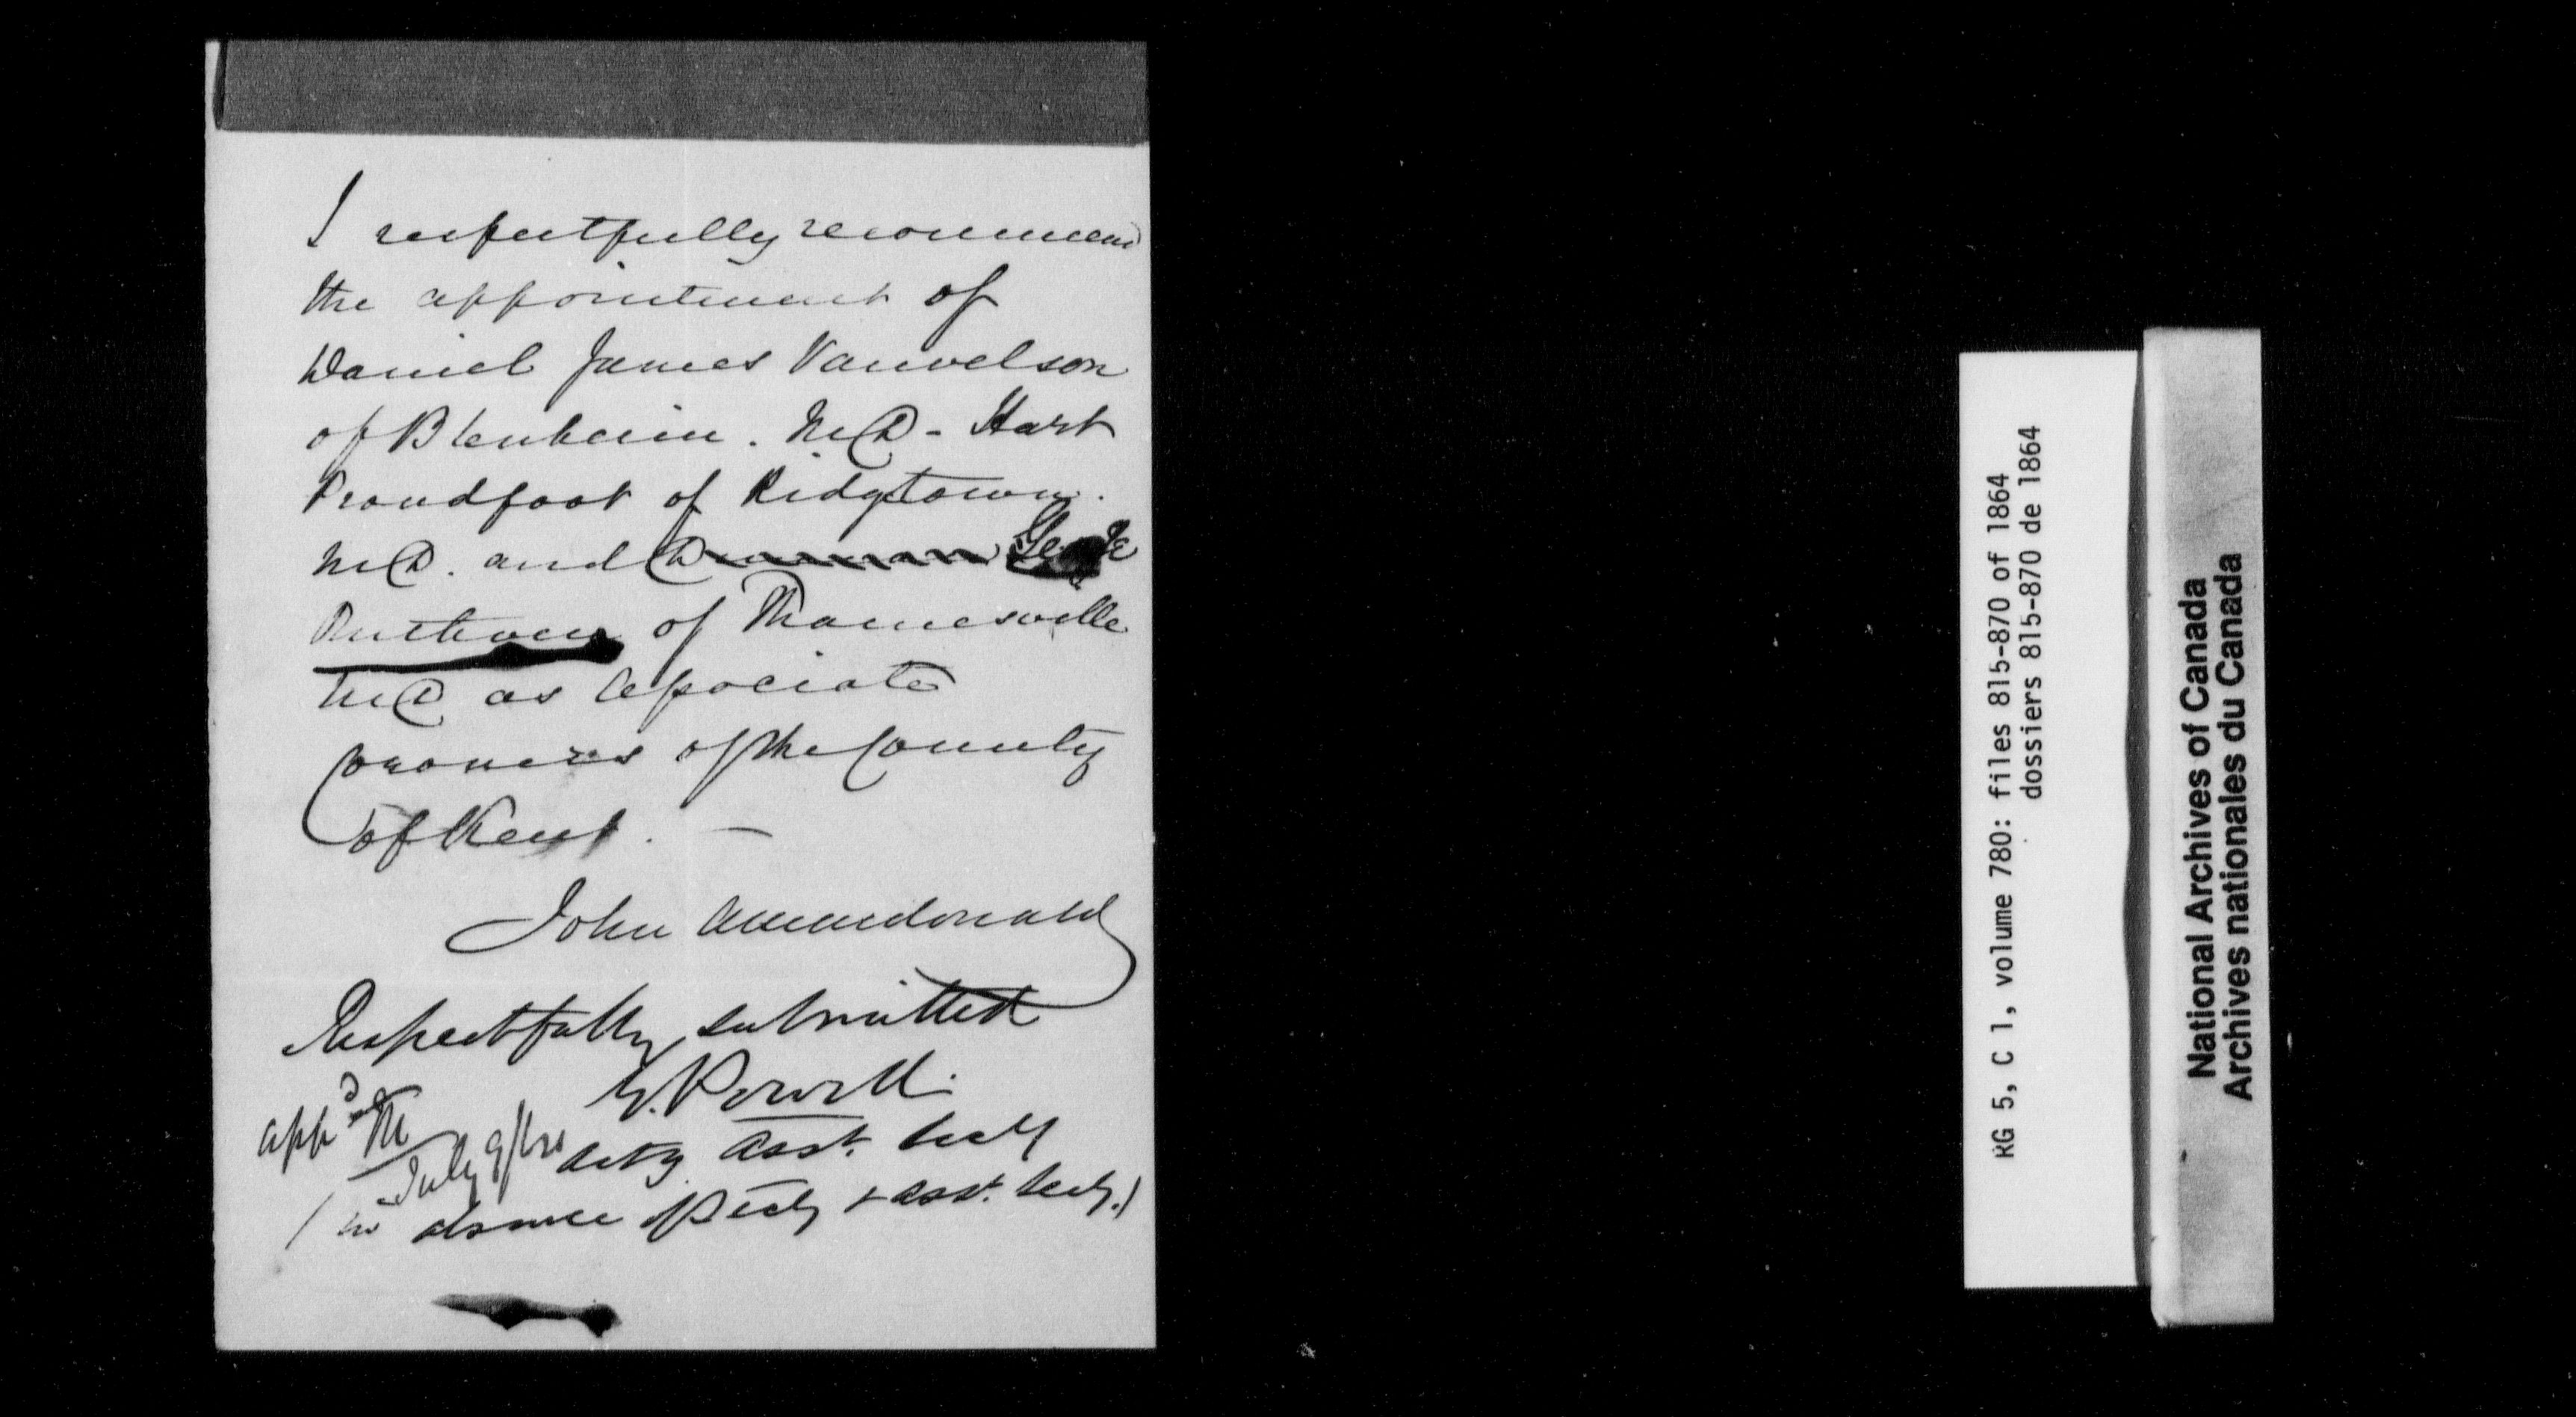 I respectfully recommend
the appointment of
Daniel James Vanvelson
of Blenheim. MD - Hart
Proudfoot of Ridgetown.
MD. and
Ruthven of Thamesville
MD as Associate
Coroners of the County
of Kent. —
John A Macdonald
Respectfully submitted
G. Powell.
appd M
July 9/64 actg asst. secy
(in absence of Secy & asst. secy.)
RG 5, C 1, volume 780: files 815-870 of 1864
dossiers 815-870 de 1864
National Archives of Canada
Archives nationales du Canada